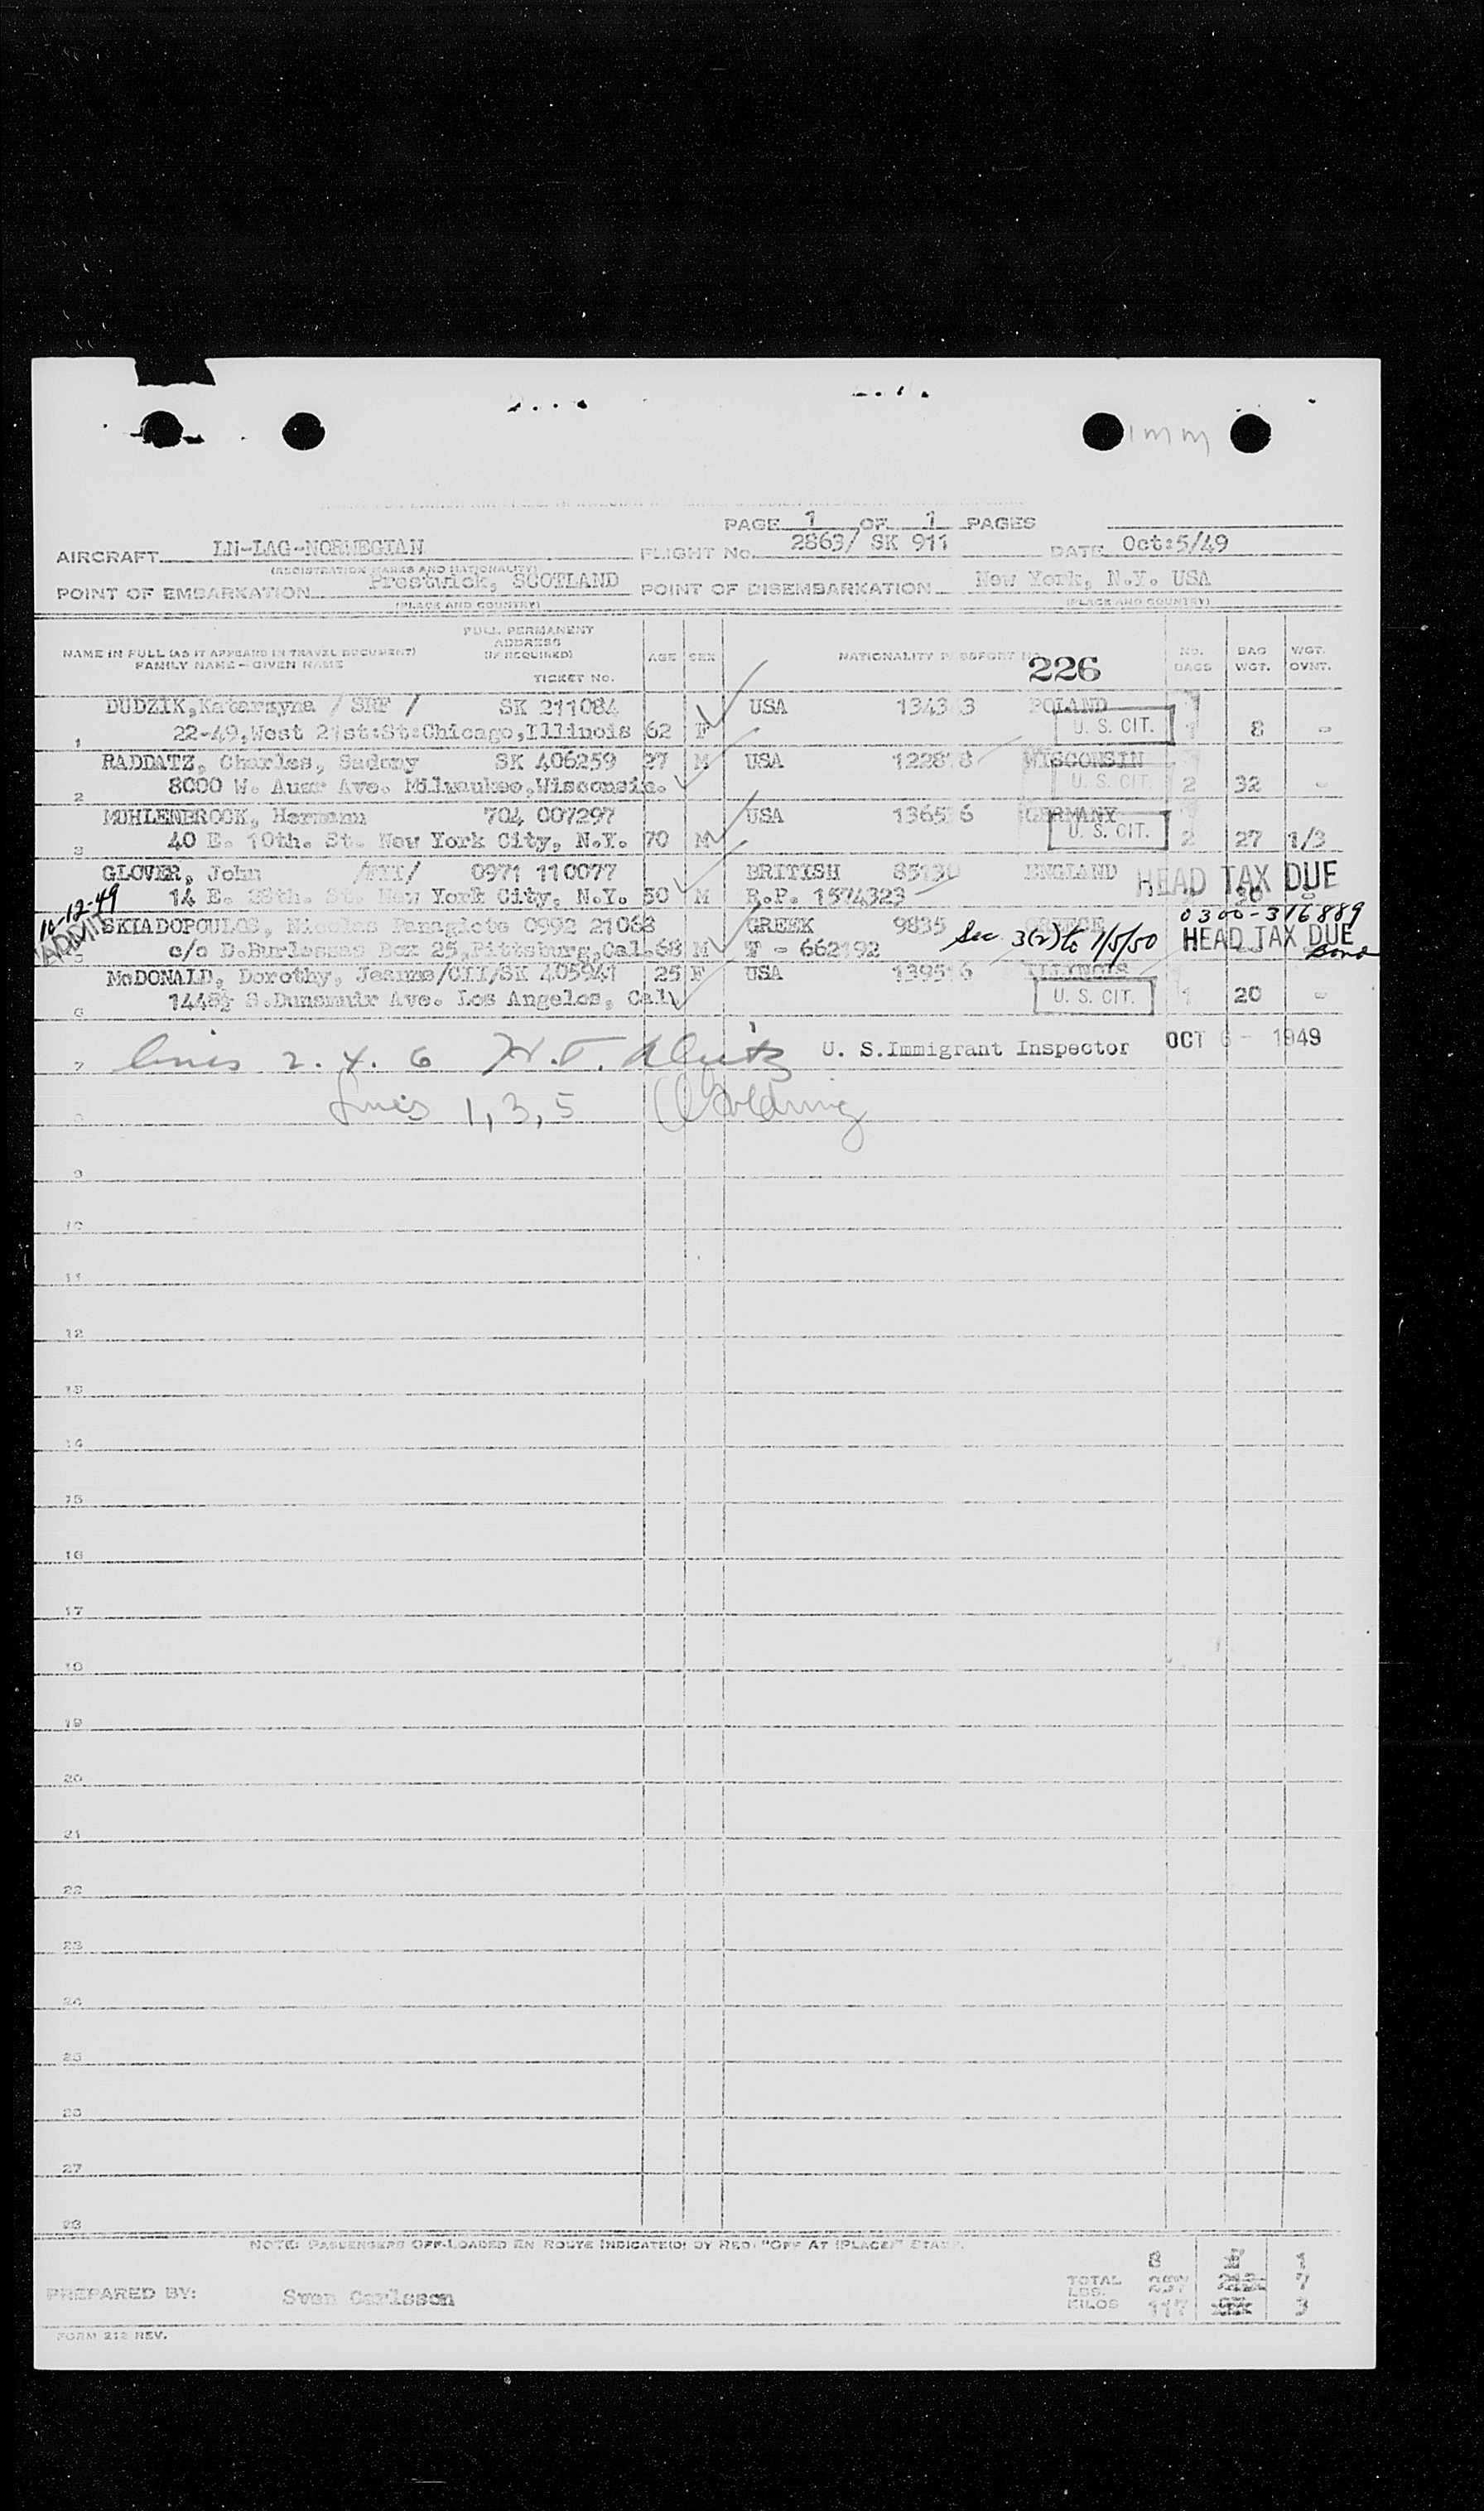 1mm
PAGE 1 OF 1 PAGES
AIRCRAFT LN-LAG-NORWEGIAN FLIGHT No. 2863/ SK 911 DATE Oct:5/49
(REGISTRATION MARKS AND NATIONALITY)
POINT OF EMBARKATION Prestwick, SCOTLAND POINT OF DISEMBARKATION New York, N.Y. USA
(PLACE AND COUNTRY) (PLACE AND COUNTRY)
NAME IN FULL (AS IT APPEARS IN TRAVEL DOCUMENT) FULL PERMANENT ADDRESS (IF REQUIRED) AGE SEX NATIONALITY PASSPORT No. 226 NO. BAGS BAG WGT. WGT. OVNT.
FAMILY NAME-GIVEN NAME
TICKET NO.
DUDZIK, Katarzyna / SRF / SK 211084 USA POLAND
1 22-49, West 21st:St:Chicago, Illinois 62 F U. S. CIT. 1 8 -
RADDATZ, Charles, Sadony SK 406259 27 M USA WISCONSIN
2 8000 W. Ave. Milwaukee, Wisconsin. U. S. CIT. 2 32 -
MUHLENBROCK, Hermann 704 007297 USA GERMANY
3 40 E. 10th. St. New York City, N.Y. 70 M U. S. CIT. 2 27 1/3
GLOVER, John 0971 110077 BRITISH 85130 ENGLAND HEAD TAX DUE
14 E. 28th. St. New York City, N.Y. 50 M R.P. 1574323 30
10-12-49 ADMIT SKIADOPOULOS, Nicolas 0992 21068 GREEK 9835 GREECE 0300-316889
5 c/o Box 25, Pittsburg, Cal. 68 M T - 662192 Sec 3(2) to 1/5/50 HEAD TAX DUE Bond
McDONALD, Dorothy, Jeanne/CII/SK 405941 25 F USA ILLINOIS
6 1445½ S.Dunsmuir Ave. Los Angelos, Cal U. S. CIT. 1 20 -
7 lines 2. 4. 6 U. S.Immigrant Inspector OCT 6 - 1949
8 Lines 1, 3, 5
9
10
11
12
13
14
15
16
17
18
19
20
21
22
23
24
25
26
27
28
NOTE: PASSENGERS OFF-LOADED EN ROUTE INDICATE(D) BY RED "OFF AT (PLACE)" STAMP.
8 1
PREPARED BY: Sven Carlsson TOTAL LBS. 257 7
KILOS 117 3
FORM 212 REV.